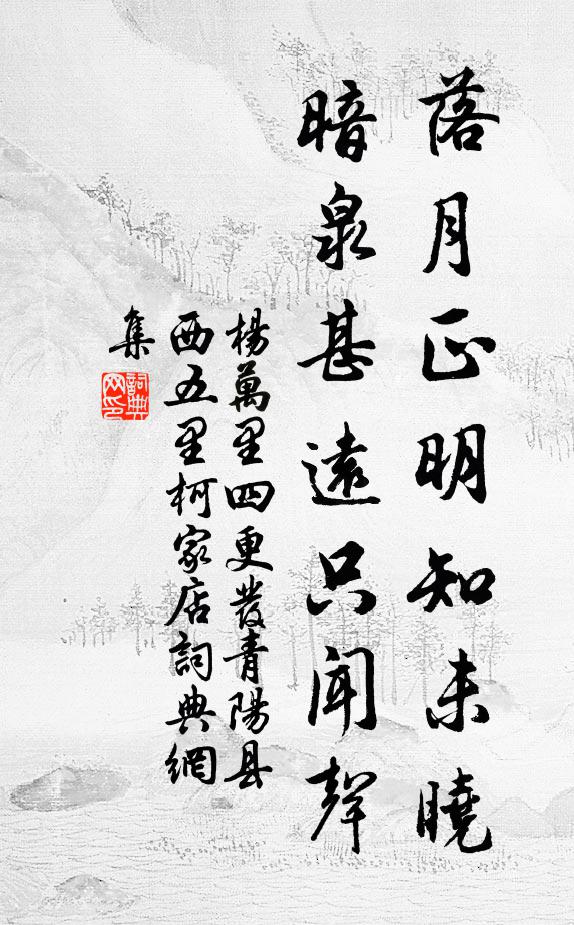 落月正明知未曉
暗泉甚遠只聞聲
楊萬里四更發青陽县
西五里柯家店詞典網
集
詞典
网印